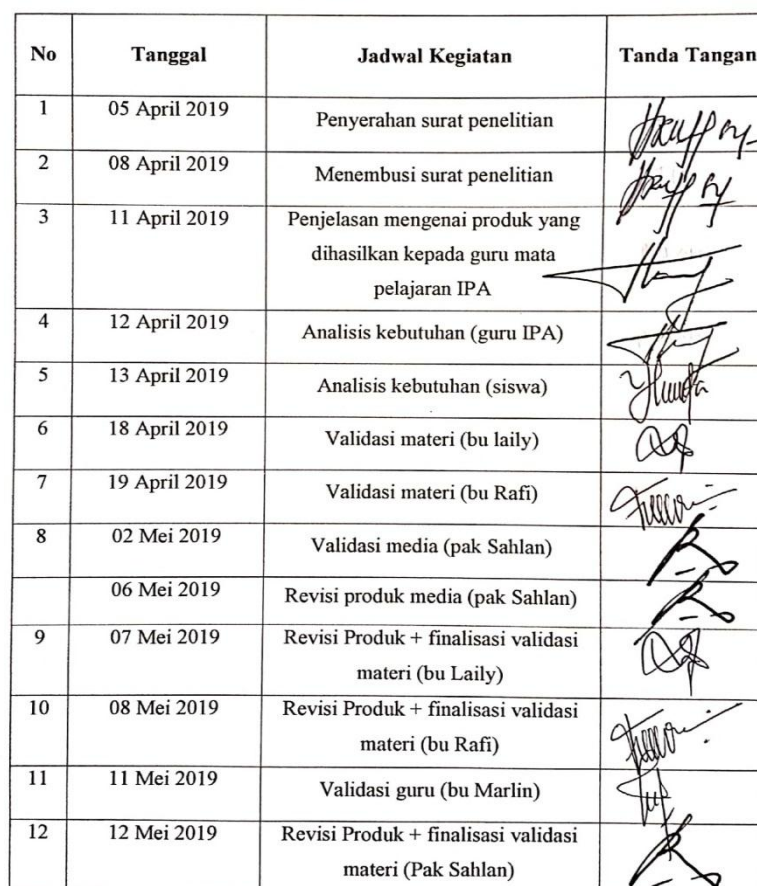 No Tanggal Jadwal Kegiatan Tanda Tangan
1 05 April 2019 Penyerahan surat penelitian
2 08 April 2019 Menembusi surat penelitian
3 11 April 2019 Penjelasan mengenai produk yang
dihasilkan kepada guru mata
pelajaran IPA
4 12 April 2019 Analisis kebutuhan (guru IPA)
5 13 April 2019 Analisis kebutuhan (siswa)
6 18 April 2019 Validasi materi (bu laily)
7 19 April 2019 Validasi materi (bu Rafi)
8 02 Mei 2019 Validasi media (pak Sahlan)
06 Mei 2019 Revisi produk media (pak Sahlan)
9 07 Mei 2019 Revisi Produk + finalisasi validasi
materi (bu Laily)
10 08 Mei 2019 Revisi Produk + finalisasi validasi
materi (bu Rafi)
11 11 Mei 2019 Validasi guru (bu Marlin)
12 12 Mei 2019 Revisi Produk + finalisasi validasi
materi (Pak Sahlan)